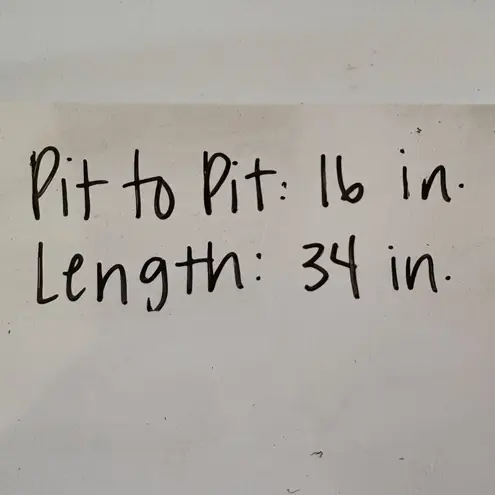 Pit to Pit: 16 in.
Length: 34 in.